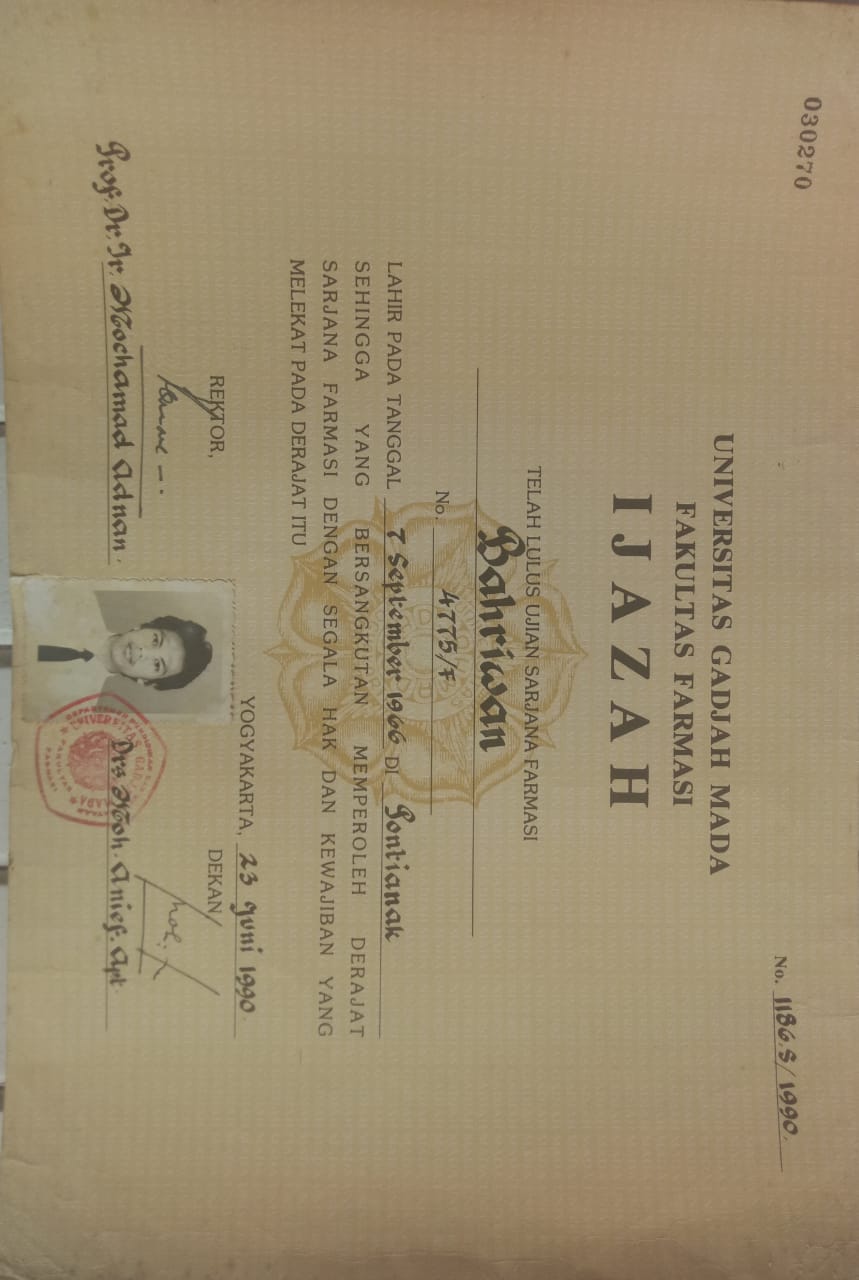 030270
No. 1186.S/1990.
UNIVERSITAS GADJAH MADA
FAKULTAS FARMASI
IJAZAH
TELAH LULUS UJIAN SARJANA FARMASI
Bahriwan
No. 4775/F
LAHIR PADA TANGGAL 7 September 1966 DI Pontianak
SEHINGGA YANG BERSANGKUTAN MEMPEROLEH DERAJAT
SARJANA FARMASI DENGAN SEGALA HAK DAN KEWAJIBAN YANG
MELEKAT PADA DERAJAT ITU
YOGYAKARTA, 23 Juni 1990.
REKTOR,
DEKAN
Prof. Dr. Ir. Mochamad Adnan.
Drs. Moh. Anief. Apt.
UNIVERSITAS
FAKULTAS
FARMASI